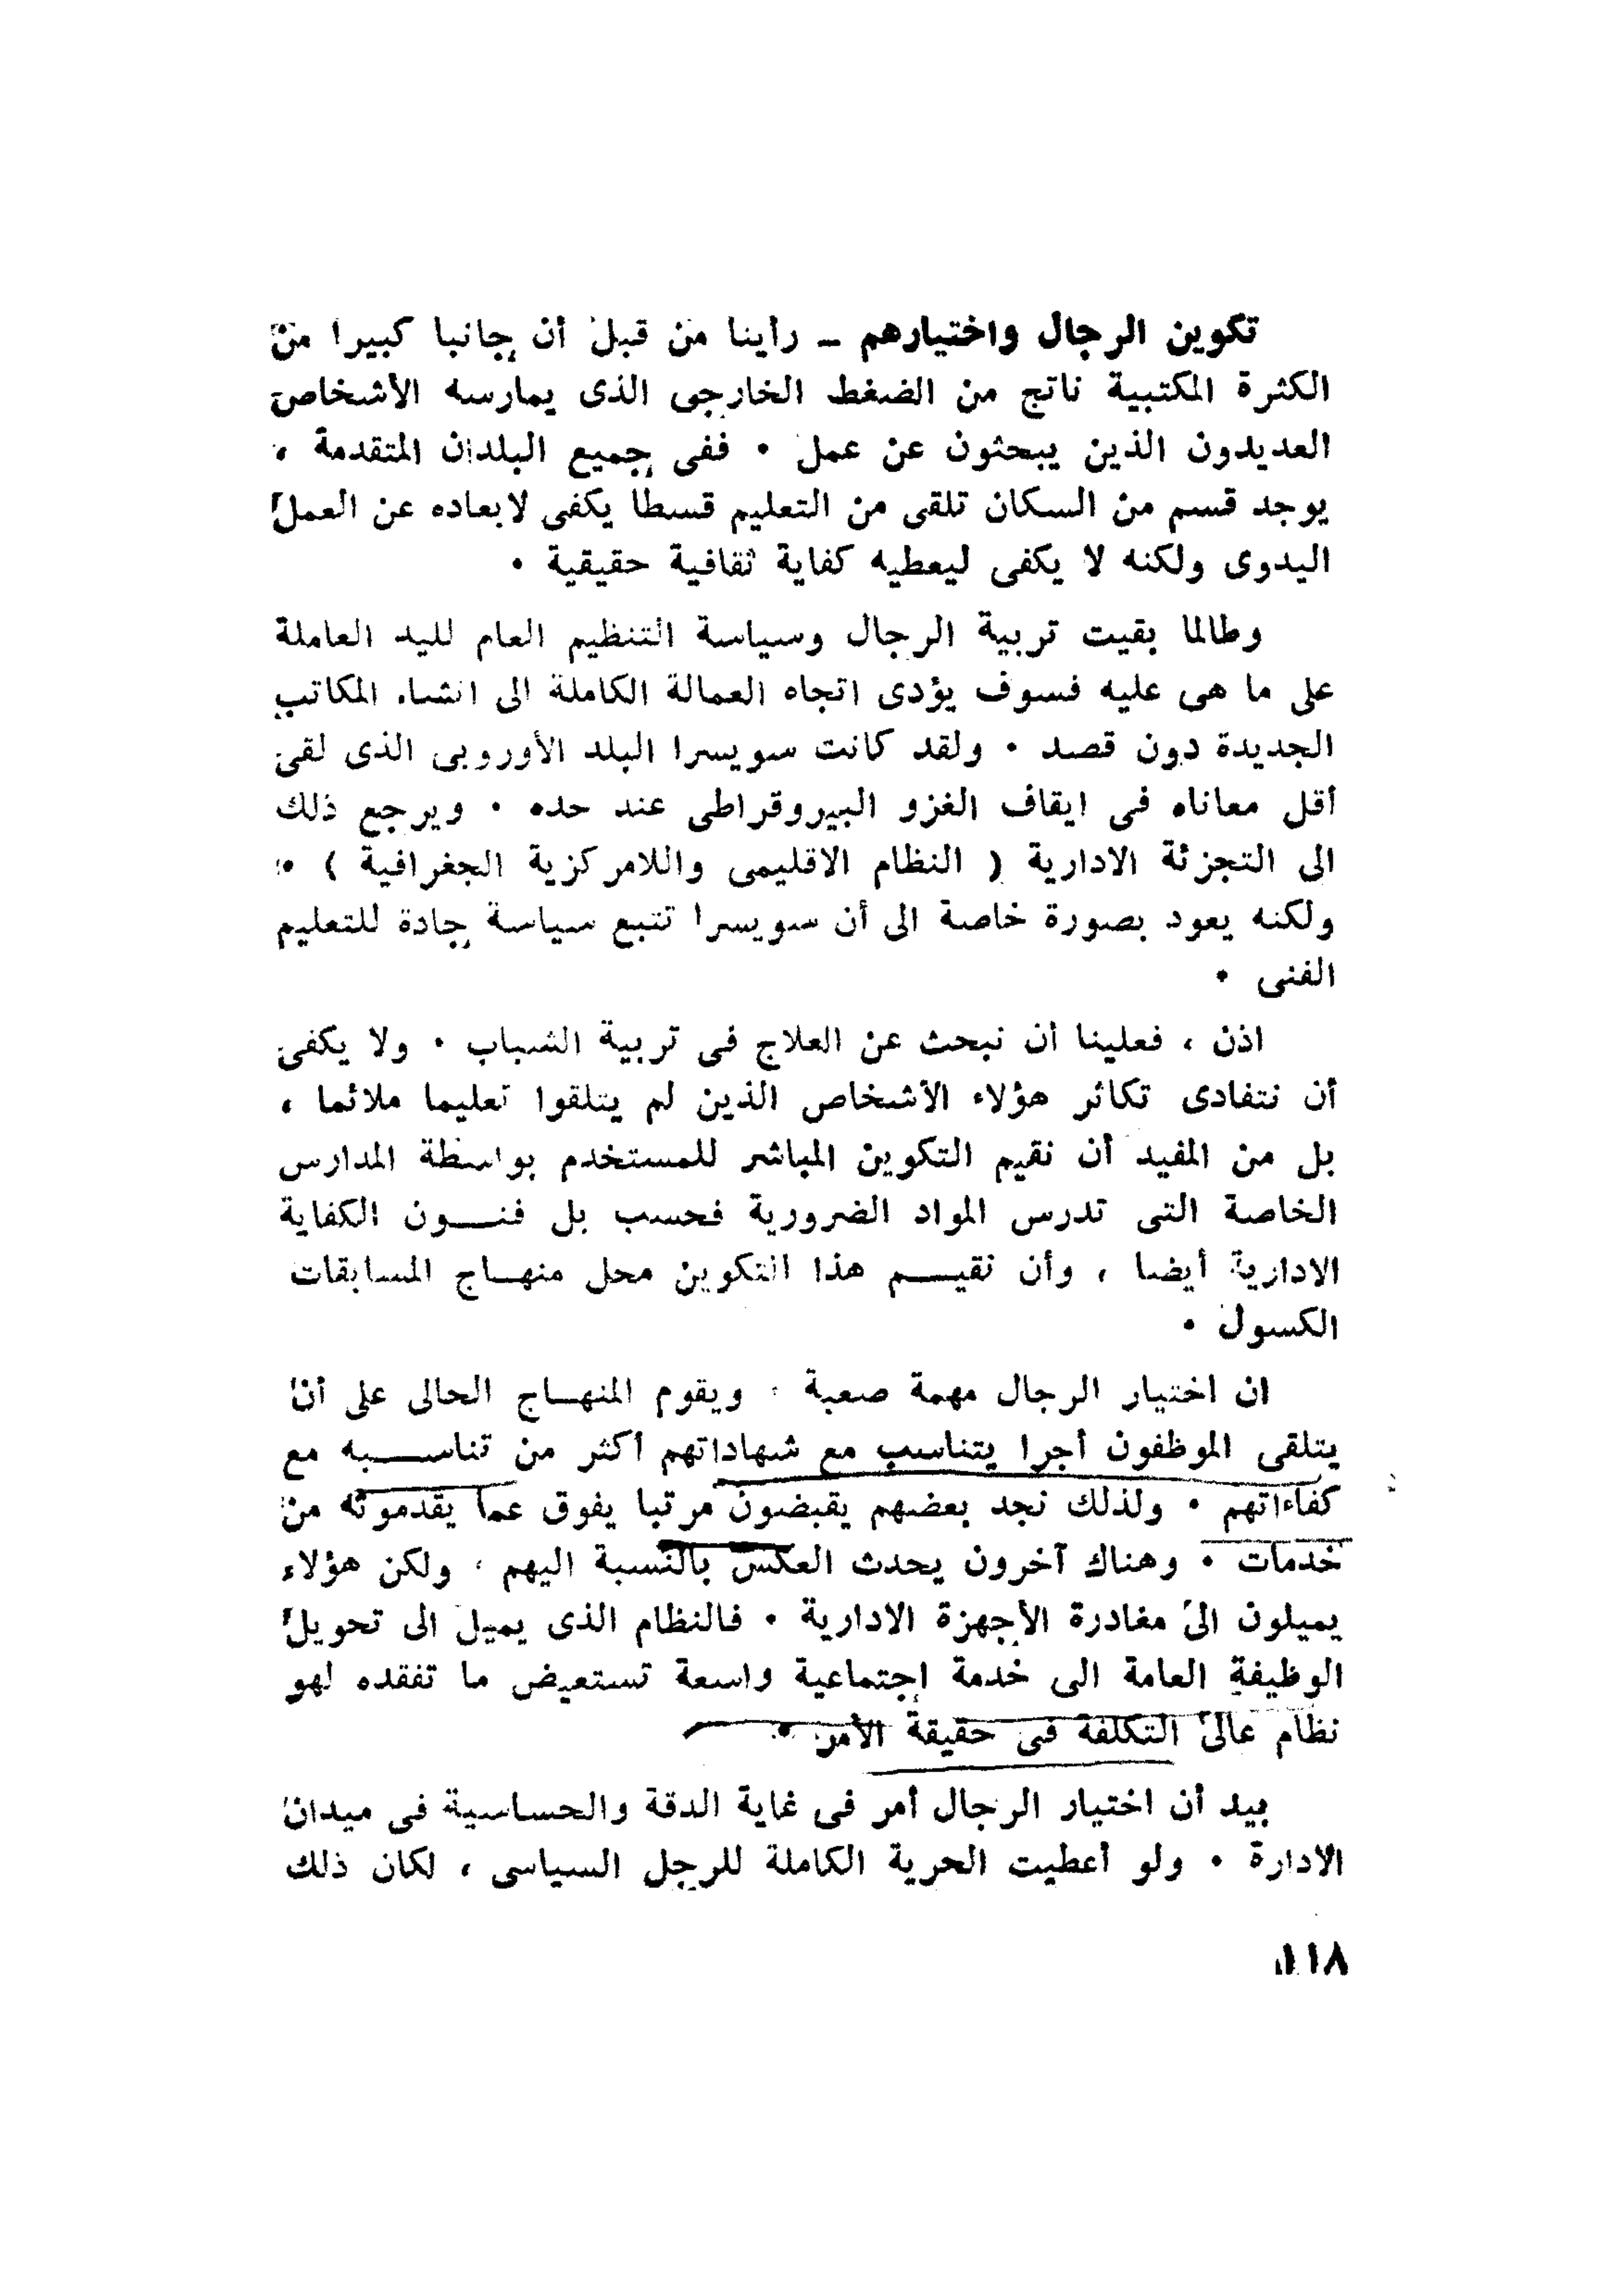 تكوين الرجال واختيارهم ــ رأينا من قبل أن جانبا كبيرا من
الكثرة المكتبية ناتج من الضغط الخارجى الذى يمارسه الأشخاص
العديدون الذين يبحثون عن عمل ٠ ففى جميع البلدان المتقدمة ،
يوجد قسم من السكان تلقى من التعليم قسطا يكفى لابعاده عن العمل
اليدوى ولكنه لا يكفى ليعطيه كفاية ثقافية حقيقية ٠
وطالما بقيت تربية الرجال وسياسة التنظيم العام لليد العاملة
على ما هى عليه فسوف يؤدى اتجاه العمالة الكاملة الى انشاء المكاتب
الجديدة دون قصد ٠ ولقد كانت سويسرا البلد الأوروبى الذى لقى
أقل معاناه فى ايقاف الغزو البيروقراطى عند حده ٠ ويرجع ذلك
الى التجزئة الادارية ( النظام الاقليمى واللامركزية الجغرافية ) ٠
ولكنه يعود بصورة خاصة الى أن سويسرا تتبع سياسة جادة للتعليم
الفنى ٠
اذن ، فعلينا أن نبحث عن العلاج فى تربية الشباب ٠ ولا يكفى
أن نتفادى تكاثر هؤلاء الأشخاص الذين لم يتلقوا تعليما ملائما ،
بل من المفيد أن نقيم التكوين المباشر للمستخدم بواسطة المدارس
الخاصة التى تدرس المواد الضرورية فحسب بل فنـــون الكفاية
الادارية أيضا ، وأن نقيـــم هذا التكوين محل منهـاج المسابقات
الكسول ٠
ان اختيار الرجال مهمة صعبة ٠ ويقوم المنهـاج الحالى على أن
يتلقى الموظفون أجرا يتناسب مع شهاداتهم أكثر من تناســـبه مع
كفاءاتهم ٠ ولذلك نجد بعضهم يقبضون مرتبا يفوق عما يقدمونه من
خدمات ٠ وهناك آخرون يحدث العكس بالنسبة اليهم ، ولكن هؤلاء
يميلون الى مغادرة الأجهزة الادارية ٠ فالنظام الذى يميل الى تحويل
الوظيفة العامة الى خدمة إجتماعية واسعة تستعيض ما تفقده لهو
نظام عالى التكلفة فى حقيقة الأمر ٠
بيد أن اختيار الرجال أمر فى غاية الدقة والحساسية فى ميدان
الادارة ٠ ولو أعطيت الحرية الكاملة للرجل السياسى ، لكان ذلك
١١٨